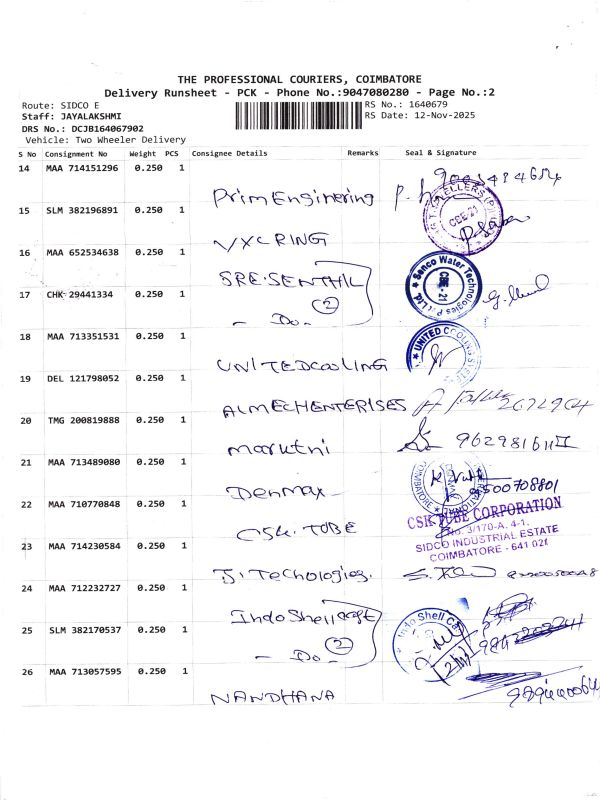 THE PROFESSIONAL COURIERS, COIMBATORE
Delivery Runsheet - PCK - Phone No.:9047080280 - Page No.:2
Route: SIDCO E
RS No.: 1640679
Staff: JAYALAKSHMI
RS Date: 12-Nov-2025
DRS No.: DCJB164067902
Vehicle: Two Wheeler Delivery
S No Consignment No Weight PCS Consignee Details Remarks Seal & Signature
14 MAA 714151296 0.250 1
Prim Enginering
15 SLM 382196891 0.250 1
CBE-21
VXL RING
16 MAA 652534638 0.250 1
SRE.SENTHIL
Sanco Water Technologies P. Ltd.
17 CHK 29441334 0.250 1
2
- Do -
18 MAA 713351531 0.250 1
UNITED COOLING
UNITEDCOOLING
19 DEL 121798052 0.250 1
ALMECHENTERISES
20 TMG 200819888 0.250 1
marutni
21 MAA 713489080 0.250 1
COIMBATORE
8500708801
Denmax
22 MAA 710770848 0.250 1
CSK TUBE CORPORATION
No. 3/170-A, 4-1,
SIDCO INDUSTRIAL ESTATE
COIMBATORE - 641 021
CSK. TUBE
23 MAA 714230584 0.250 1
J. Techologies.
24 MAA 712232727 0.250 1
IndoShell cast
Indo Shell
25 SLM 382170537 0.250 1
2
- Do -
26 MAA 713057595 0.250 1
NANDHANA